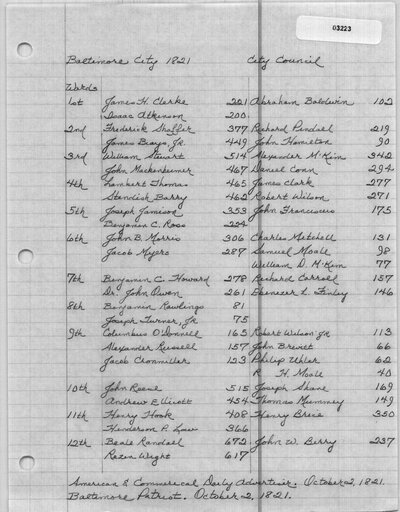 03223
Baltimore City 1821 City Council
Wards
1st James H. Clarke 221 Abraham Baldwin 102
Isaac Atkinson 200
2nd Frederick Shaffer 377 Richard Pindell 219
James Beays Jr. 449 John Hamilton 90
3rd William Stuart 514 Alexander M'Kim 342
John Mackenheimer 467 Daniel Conn 294
4th Lambert Thomas 465 James Clark 277
Standish Barry 462 Robert Wilson 271
5th Joseph Jamison 353 John Franciscus 175
Benjamin C. Ross 224
6th John B. Morris 306 Charles Mitchell 131
Jacob Myers 287 Samuel Moale 98
William D. M'Kim 77
7th Benjamin C. Howard 278 Richard Carroll 157
Dr. John Owen 261 Ebenezer L. Finley 146
8th Benjamin Rawlings 81
Joseph Turner, Jr 75
9th Columbus O'Donnell 165 Robert Wilson Jr 113
Alexander Russell 157 John Brevitt 66
Jacob Cronmiller 123 Philip Uhler 62
R H. Moale 40
10th John Reese 515 Joseph Shane 169
Andrew Ellicott 454 Thomas Mummey 149
11th Henry Hook 408 Henry Brice 350
Henderson P. Low 366
12th Beale Randall 672 John W. Berry 237
Rezin Wight 617
American & Commercial Daily Advertiser. October 2, 1821.
Baltimore Patriot. October 2, 1821.